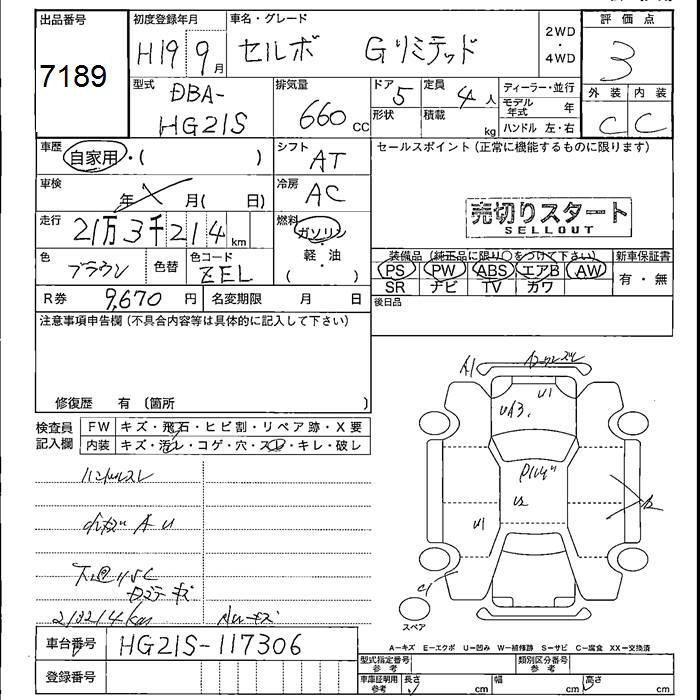 出品番号 初度登録年月 車名・グレード 2WD・4WD 評価点
7189 H19 9月 セルボ Gリミテッド 3
型式 DBA-HG21S 排気量 660cc ドア 5 定員 4人 ディーラー・並行 外装 内装
形状 積載 kg モデル年式 年 C C
ハンドル 左・右
車歴 自家用・( ) シフト AT セールスポイント(正常に機能するものに限ります)
車検 年 月( 日) 冷房 AC 売切りスタート
SELLOUT
走行 21万3千214km 燃料 ガソリン
軽・油
( )
色 ブラウン 色替 色コード ZEL 装備品(純正品に限り○をつけて下さい) 新車保証書
PS PW ABS エアB AW 有・無
SR ナビ TV カワ
R券 9,670円 名変期限 月 日 後日品
注意事項申告欄(不具合内容等は具体的に記入して下さい)
修復歴 有(箇所 )
A1
U1
U3
U2
U1
検査員記入欄 FW キズ・飛石・ヒビ割・リペア跡・X要
内装 キズ・汚レ・コゲ・穴・スレ・キレ・破レ
ハンドルスレ
213214km
スペア
車台番号 HG21S-117306
A=キズ E=エクボ U=凹み W=補修跡 S=サビ C=腐食 XX=交換済
登録番号
型式指定番号参考 類別区分番号参考
車庫証明用参考 長さ cm 幅 cm 高さ cm